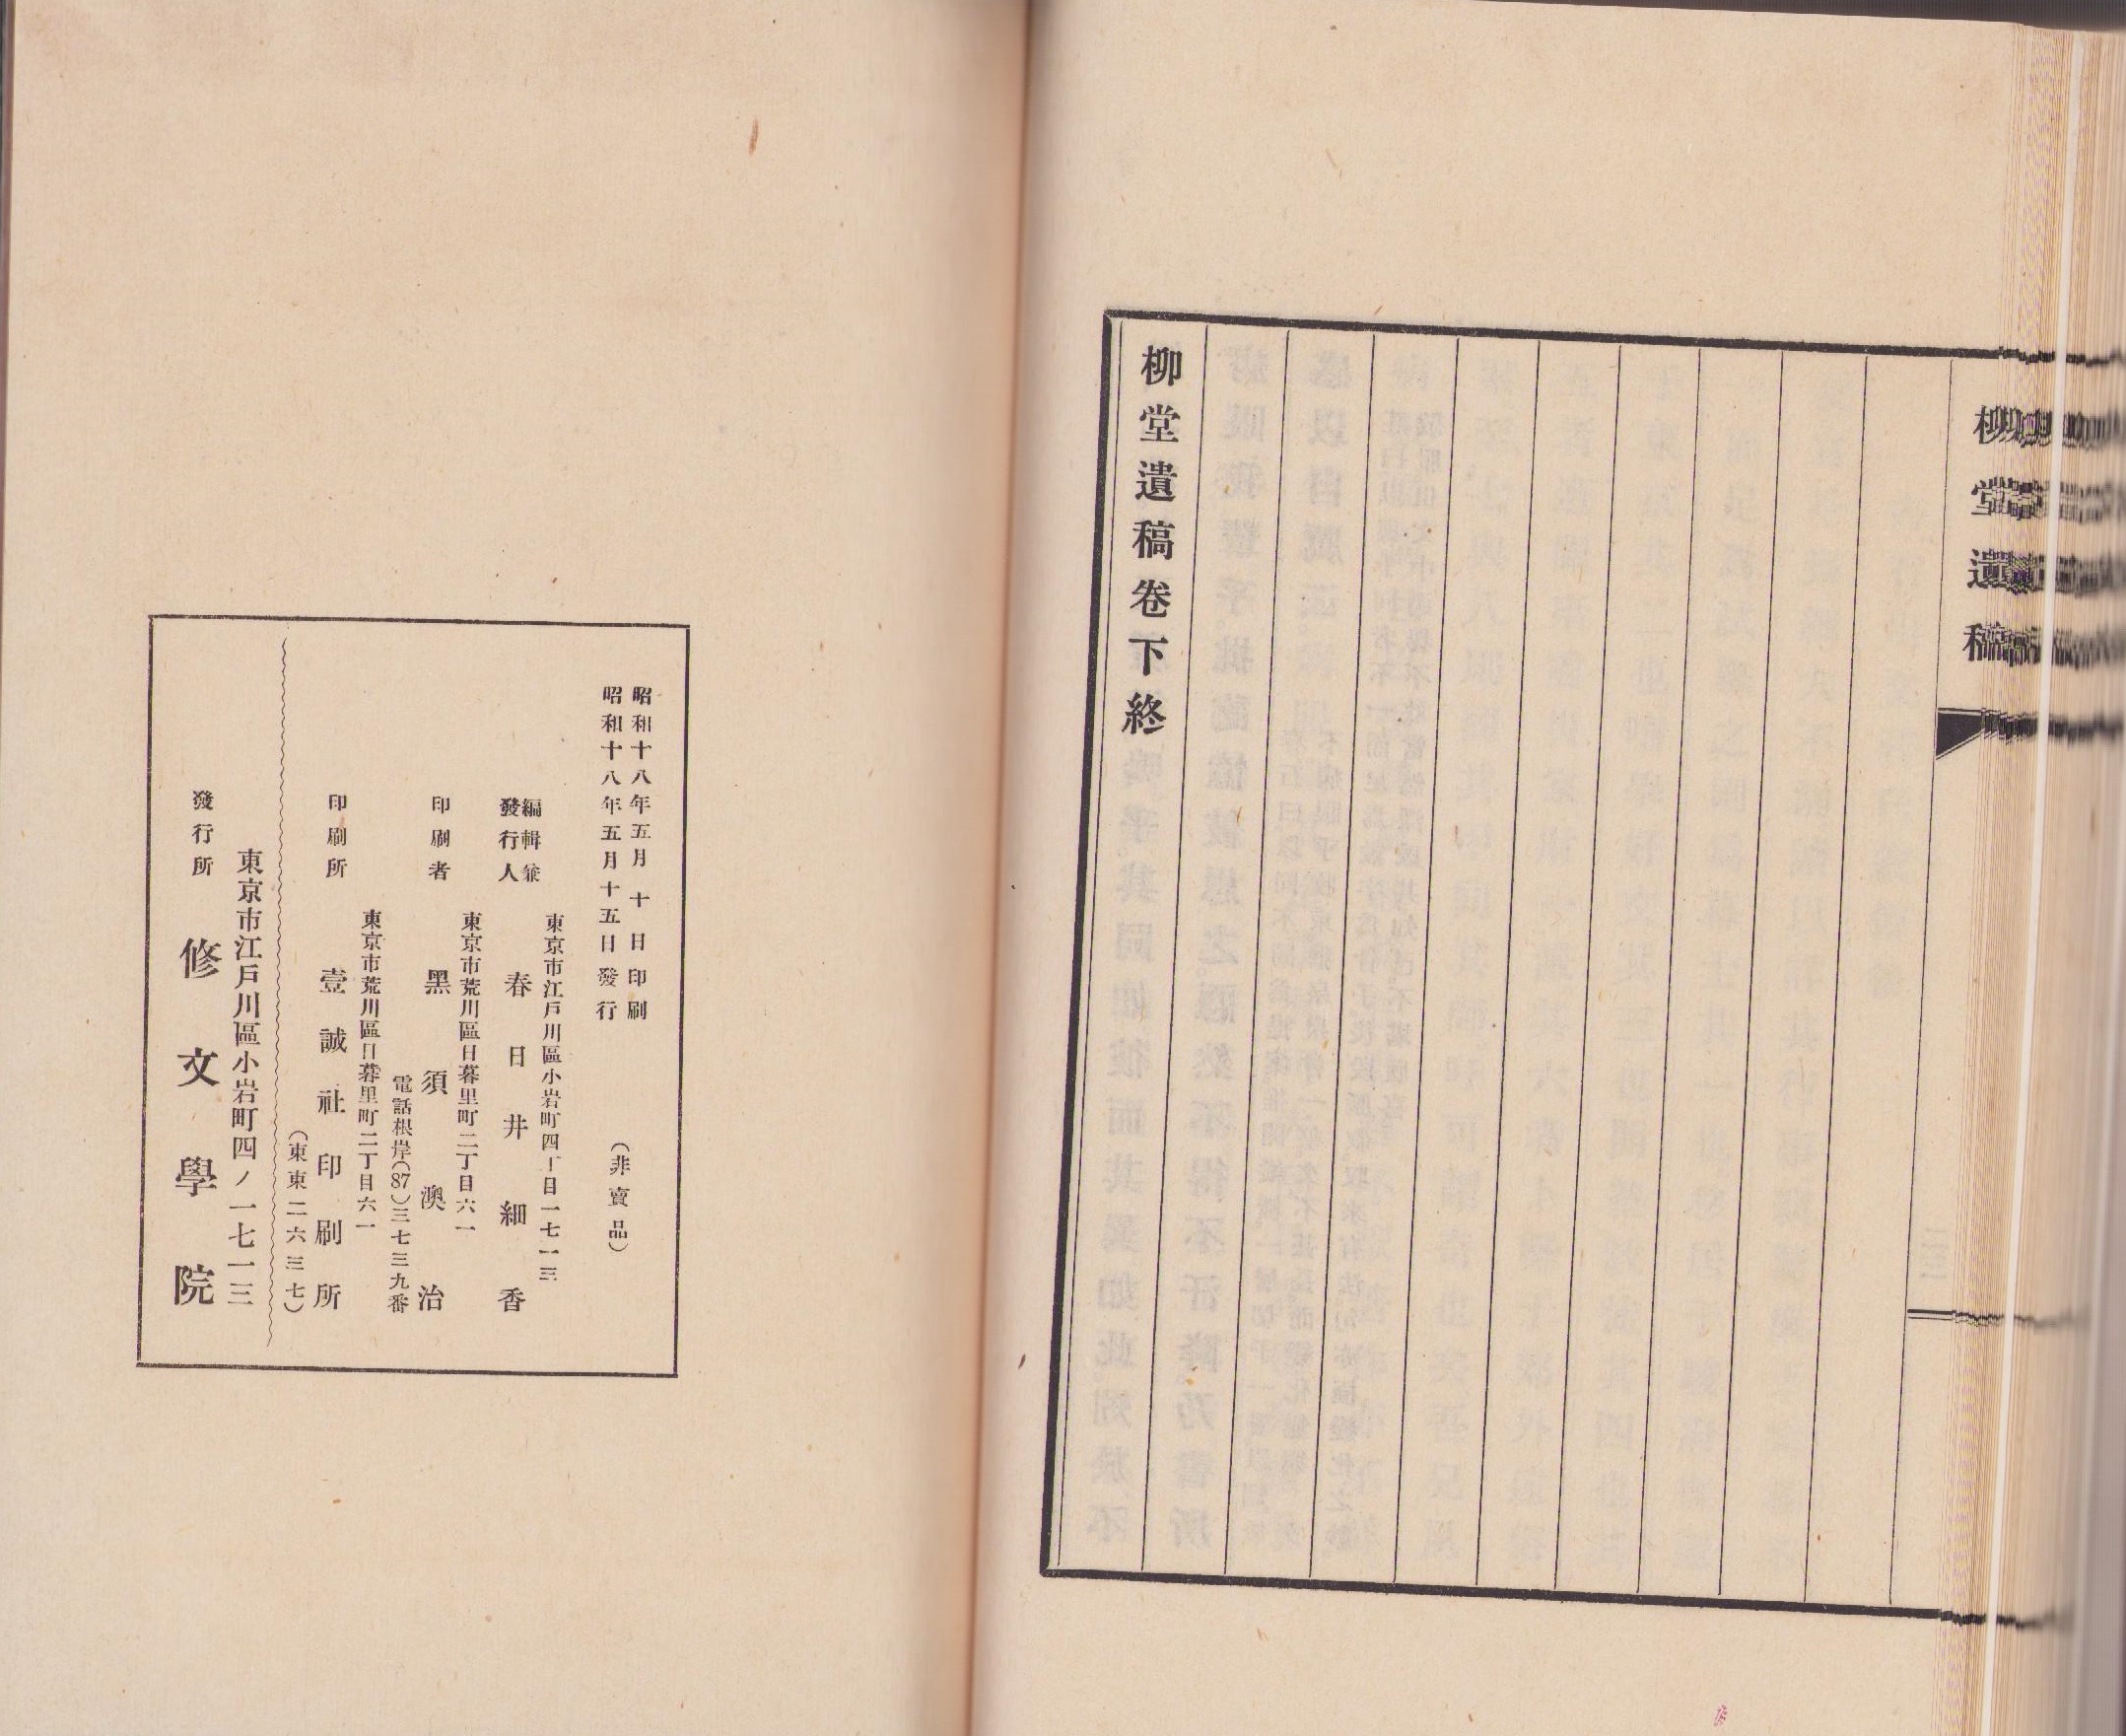 柳堂遺稿
柳堂遺稿卷下終
昭和十八年五月十日印刷
昭和十八年五月十五日發行
（非賣品）
東京市江戸川區小岩町四丁目一七一三
編輯兼
發行人
春日井細香
東京市荒川區日暮里町二丁目六一
印刷者
黑須澳治
電話根岸(87)三七三九番
東京市荒川區日暮里町二丁目六一
印刷所
壹誠社印刷所
（東東二六三七）
東京市江戸川區小岩町四ノ一七一三
發行所
修文學院